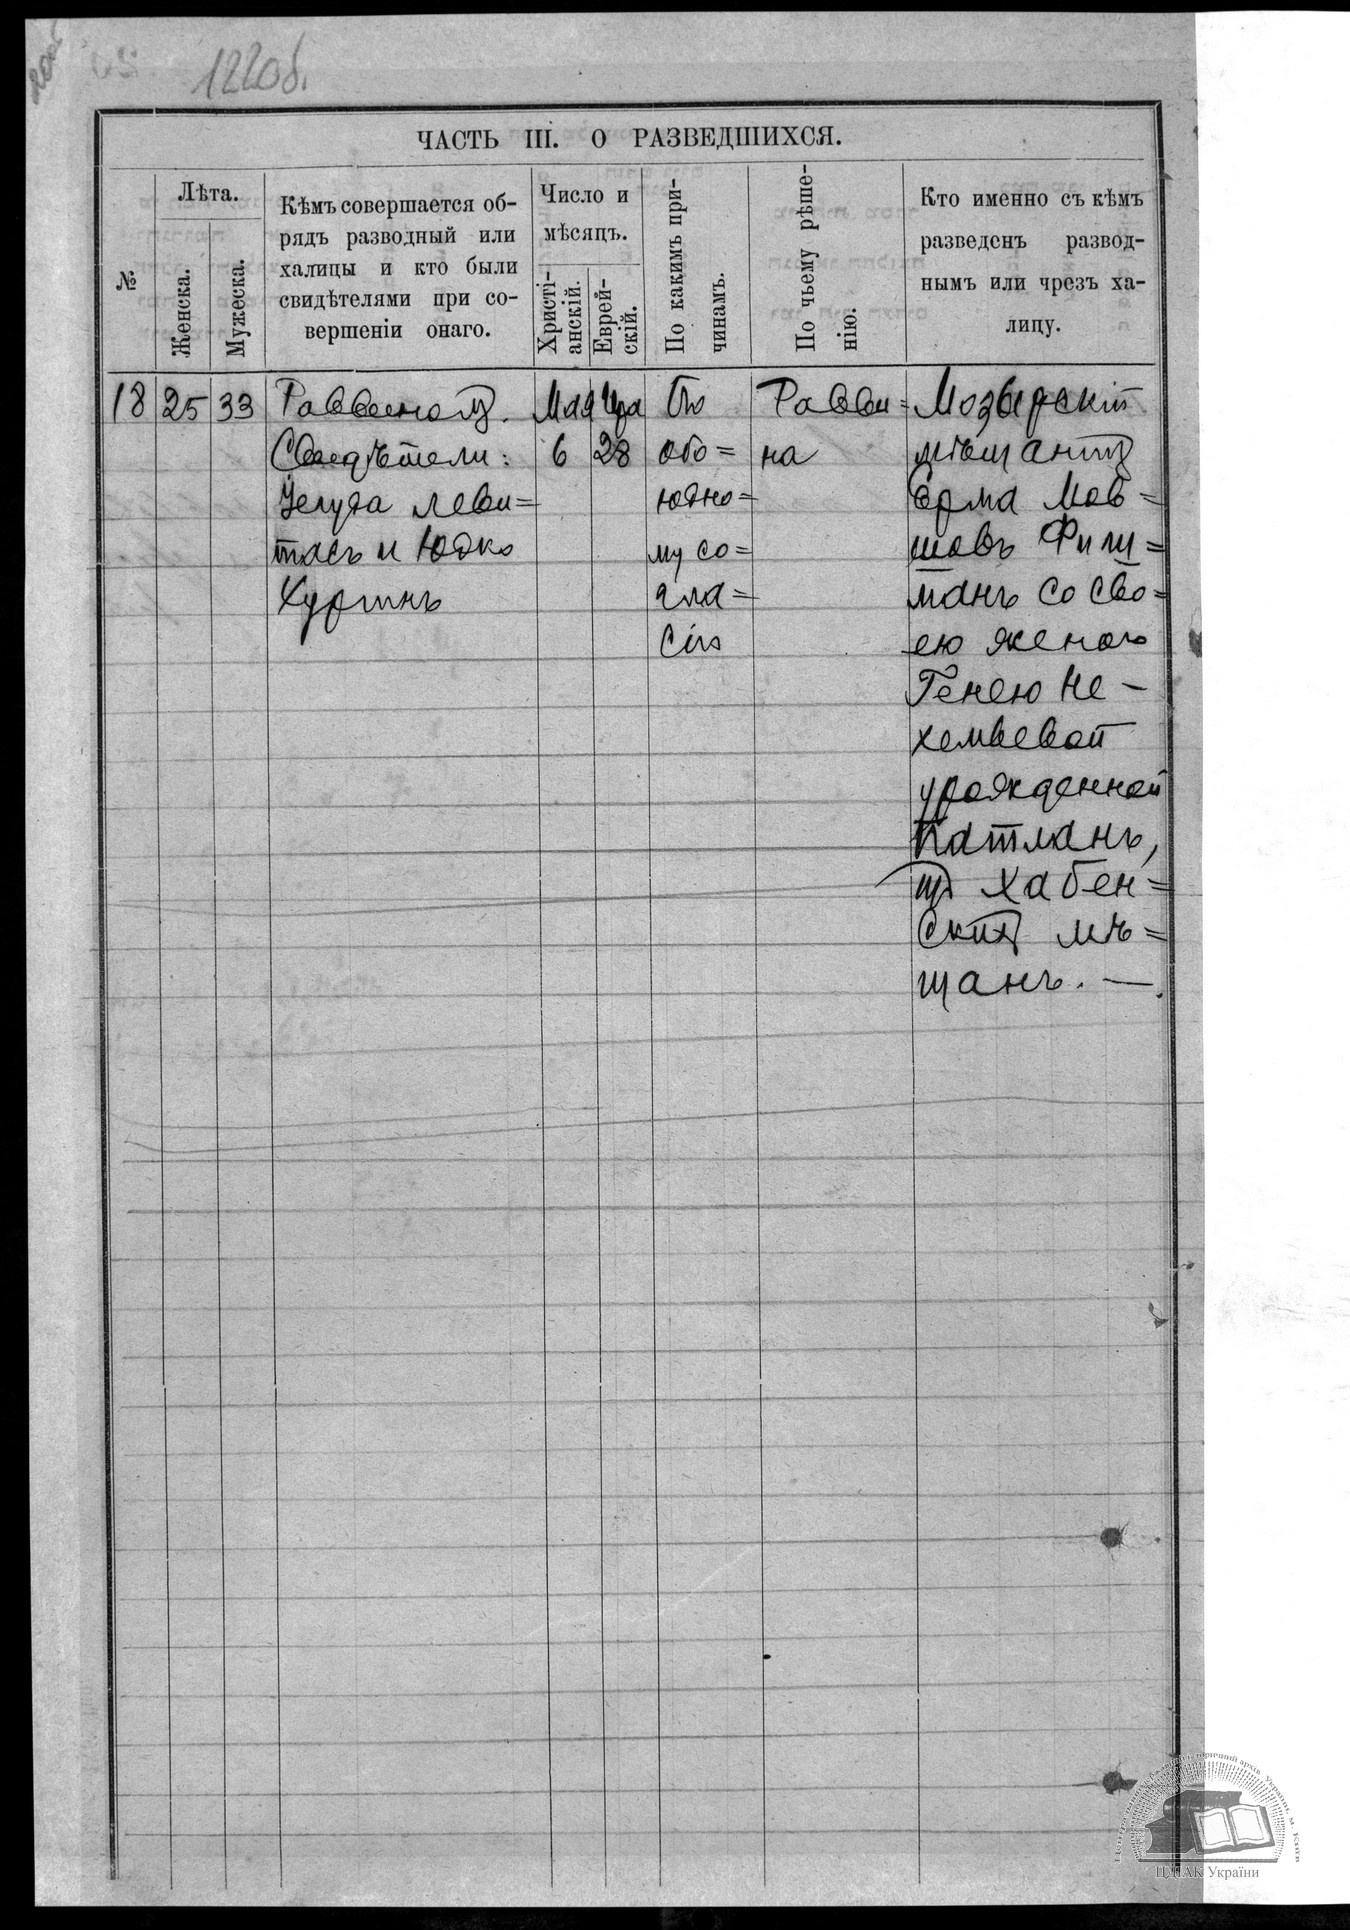 122об.
ЧАСТЬ III. О РАЗВЕДШИХСЯ.
№
Лѣта.
Женска.
Мужеска.
Кѣмъ совершается об-
рядъ разводный или
халицы и кто были
свидѣтелями при со-
вершеніи онаго.
Число и
мѣсяцъ.
Христі-
анскій.
Еврей-
скій.
По какимъ при-
чинамъ.
По чьему рѣше-
нію.
Кто именно съ кѣмъ
разведенъ развод-
нымъ или чрезъ ха-
лицу.
18
25
33
Раввиномъ.
Свидѣтели:
Іегуда Леви=
тасъ и Юдко
Хургинъ
Мая
6
Ира
28
По
обо=
юдно=
му со=
гла=
сію
Равви=
на
Мозырскій
мѣщанинъ
Ерма Мов=
шовъ Фиш=
манъ со сво=
ею женою
Генею Не-
хемьевой
урожденной
Катманъ,
изъ Хабен=
скихъ мѣ=
щанъ. —.
ЦДІАК України